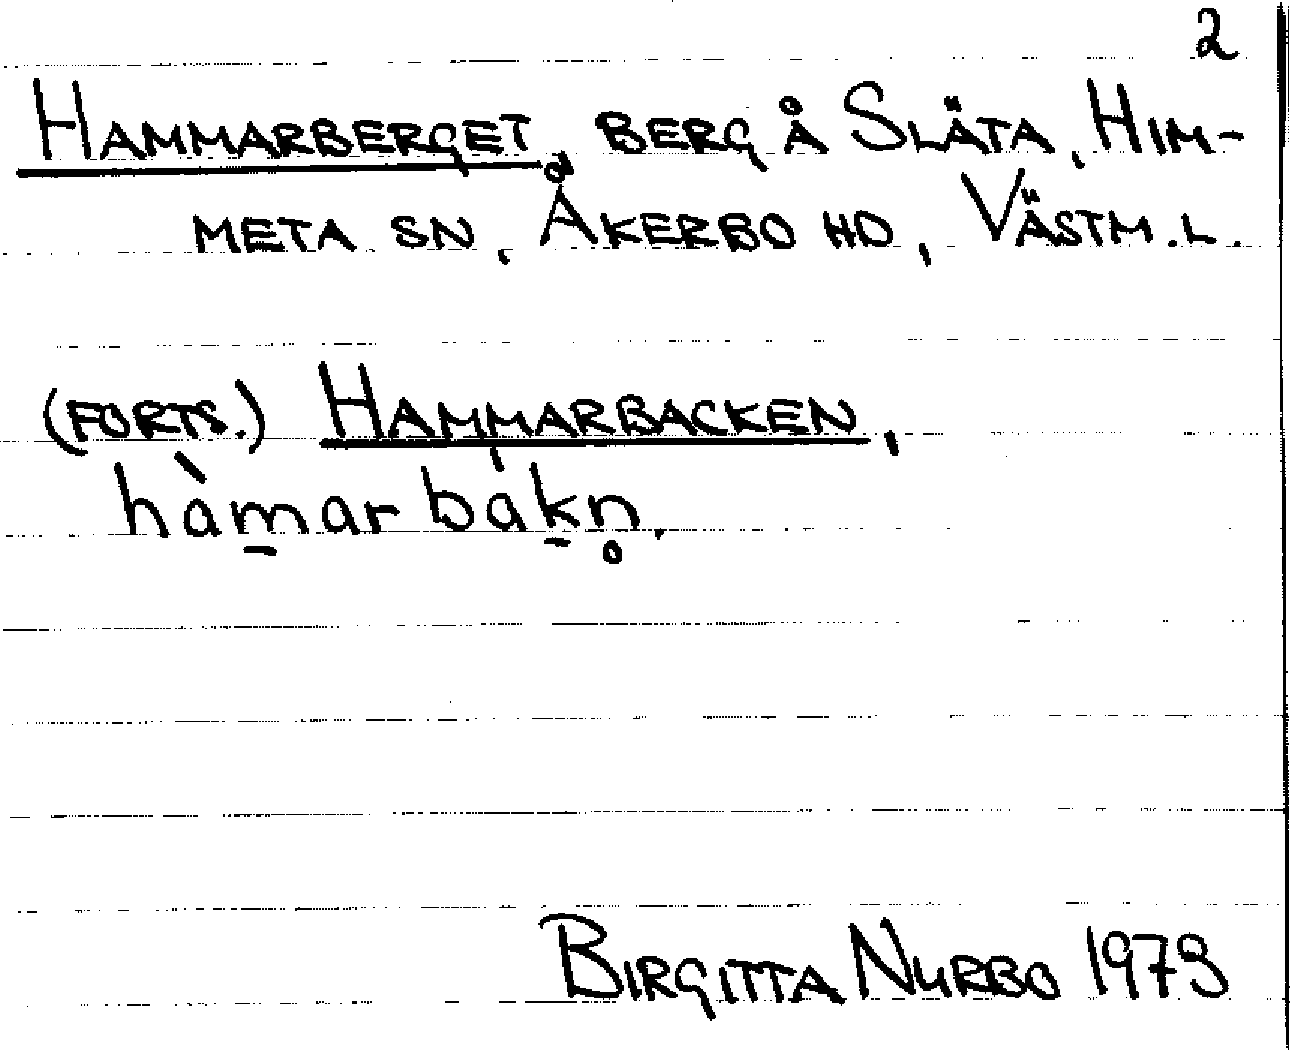 2
HAMMARBERGET, BERG Å SLÄTA, HIM-
META SN, ÅKERBO HD, VÄSTM. L.
(FORTS.) HAMMARBACKEN,
hàm̠ar bàk̠n̥.
BIRGITTA NURBO 1979